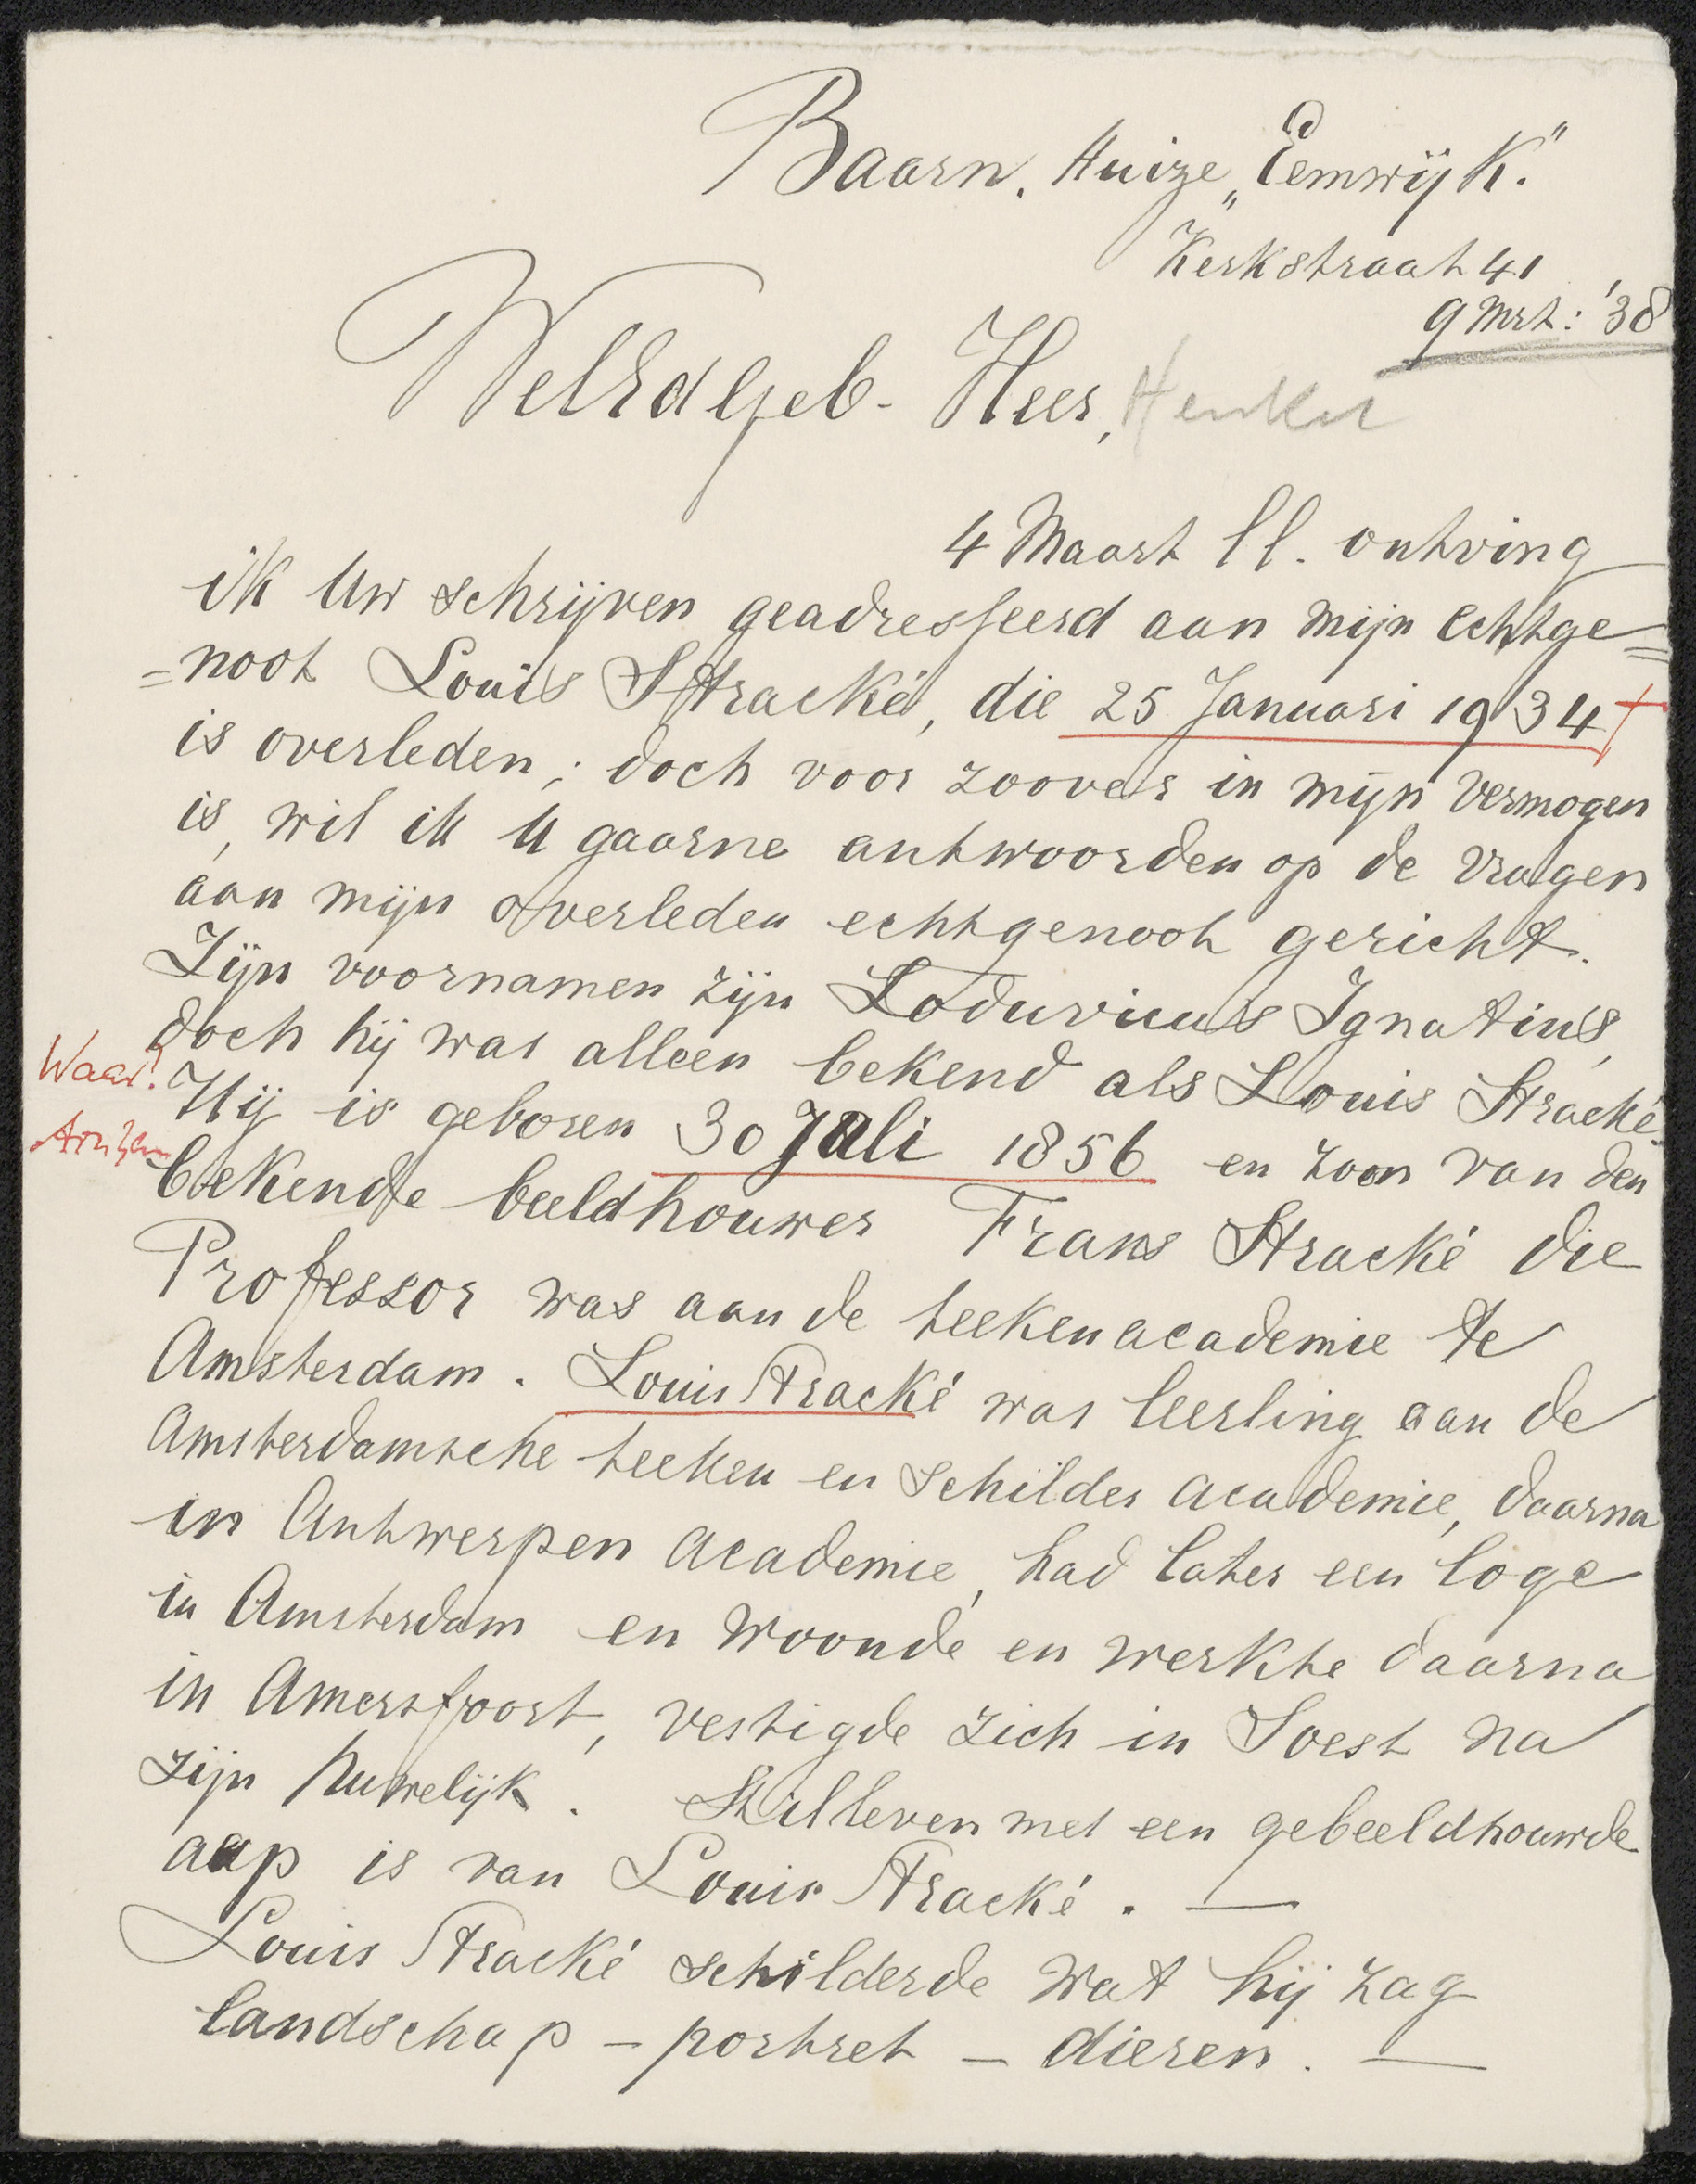 Baarn. Huize „Eemwijk."
Kerkstraat 41
9 Mrt: '38
WelEdGeb. Heer, Henkel
4 Maart ll. ontving
ik Uw schrijven geadresseerd aan mijn echtge=
=noot Louis Stracké, die 25 Januari 1934 †
is overleden; doch voor zoover in mijn vermogen
is, wil ik U gaarne antwoorden op de vragen
aan mijn overleden echtgenoot gericht.
Zijn voornamen zijn Loduvicus Ignatius,
doch hij was alleen bekend als Louis Stracké.
Waar?
Hij is geboren 30 Juli 1856 en zoon van den
Arnhem
bekende beeldhouwer Frans Stracké die
Professor was aan de teekenacademie te
Amsterdam. Louis Stracké was leerling aan de
Amsterdamsche teeken en schilder academie, daarna
in Antwerpen academie, had later een loge
in Amsterdam en woonde en werkte daarna
in Amersfoort, vestigde zich in Soest na
zijn huwelijk. Stilleven met een gebeeldhouwde
aap is van Louis Stracké. —
Louis Stracké schilderde wat hij zag
landschap - portret - dieren. —